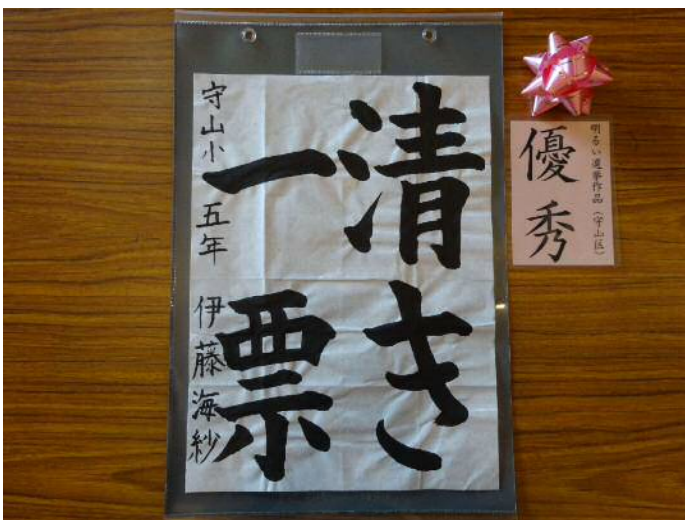 清き
一票
守山小 五年 伊藤海紗
明るい選挙作品（守山区）
優秀